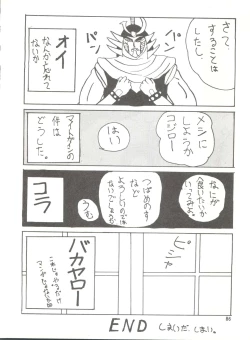 さて、
することは
したし、
オイ
なんか忘れて
ないか
メシに
しようか
コジロー
はい
件は
どうした。
なにが
食いたいか
いってみろ。
つばめのす
など
よろしいのでは
ないでしょうか
うむ
コラ
ピシャ
バカヤロー
END
しまいだ しまい。